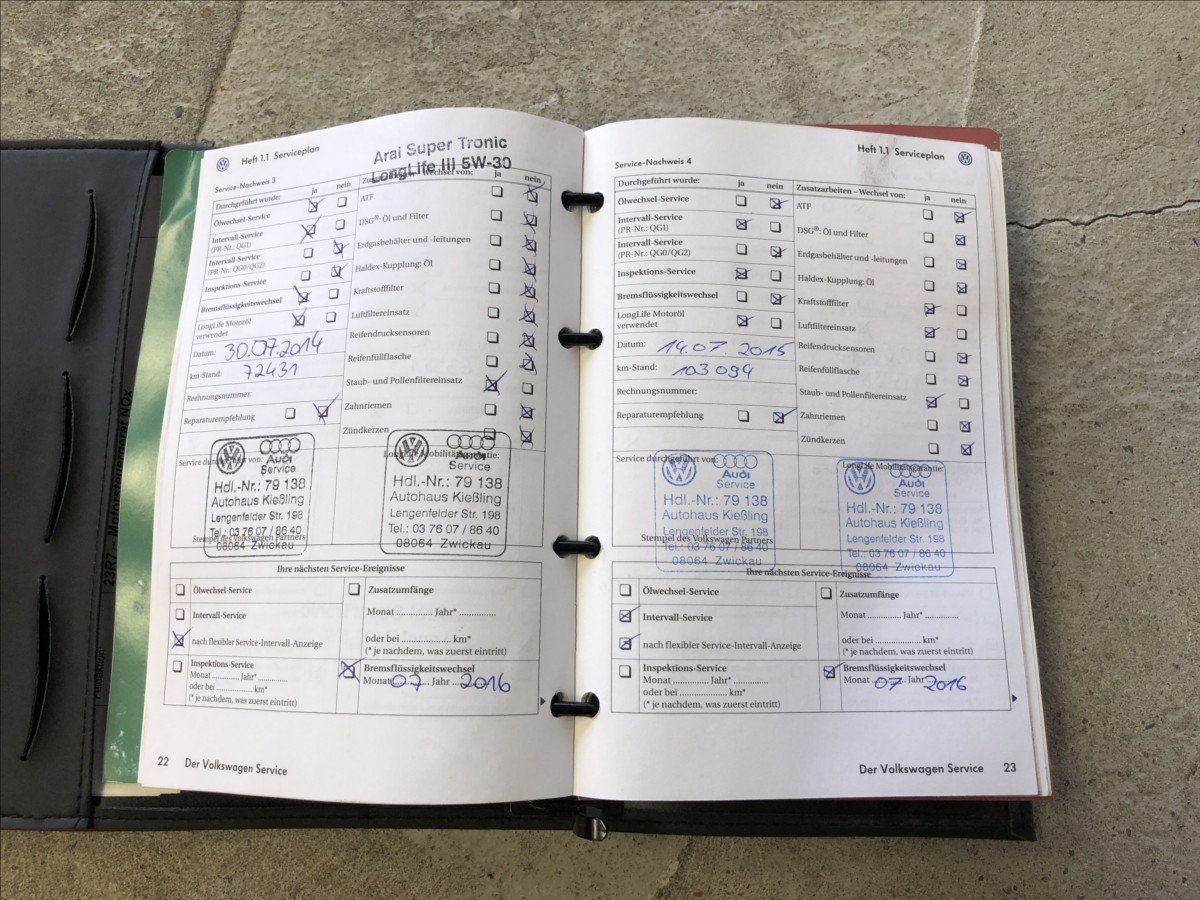 Heft 1.1 Serviceplan
Aral Super Tronic
LongLife III 5W-30
Service-Nachweis 3
Durchgeführt wurde: ja nein
Ölwechsel-Service
Intervall-Service
(PR-Nr.: QG1)
Intervall-Service
(PR-Nr.: QG0/QG2)
Inspektions-Service
Bremsflüssigkeitswechsel
LongLife Motoröl
verwendet
Datum: 30.07.2014
km-Stand: 72431
Rechnungsnummer:
Reparaturempfehlung
Zusatzarbeiten – Wechsel von: ja nein
ATF
DSG®: Öl und Filter
Erdgasbehälter und -leitungen
Haldex-Kupplung: Öl
Kraftstofffilter
Luftfiltereinsatz
Reifendrucksensoren
Reifenfüllflasche
Staub- und Pollenfiltereinsatz
Zahnriemen
Zündkerzen
Service durchgeführt von:
Audi
Service
Hdl.-Nr.: 79 138
Autohaus Kießling
Lengenfelder Str. 198
Tel.: 03 76 07 / 86 40
08064 Zwickau
Stempel des Volkswagen Partners
LongLife Mobilitätsgarantie:
Audi
Service
Hdl.-Nr.: 79 138
Autohaus Kießling
Lengenfelder Str. 198
Tel.: 03 76 07 / 86 40
08064 Zwickau
Ihre nächsten Service-Ereignisse
Ölwechsel-Service
Intervall-Service
nach flexibler Service-Intervall-Anzeige
Inspektions-Service
Monat .............. Jahr* ..............
oder bei .................... km*
(* je nachdem, was zuerst eintritt)
Zusatzumfänge
Monat .............. Jahr* ..............
oder bei .................... km*
(* je nachdem, was zuerst eintritt)
Bremsflüssigkeitswechsel
Monat 07 Jahr 2016
22 Der Volkswagen Service
Heft 1.1 Serviceplan
Service-Nachweis 4
Durchgeführt wurde: ja nein
Ölwechsel-Service
Intervall-Service
(PR-Nr.: QG1)
Intervall-Service
(PR-Nr.: QG0/QG2)
Inspektions-Service
Bremsflüssigkeitswechsel
LongLife Motoröl
verwendet
Datum: 14.07 2015
km-Stand: 103 094
Rechnungsnummer:
Reparaturempfehlung
Zusatzarbeiten – Wechsel von: ja nein
ATF
DSG®: Öl und Filter
Erdgasbehälter und -leitungen
Haldex-Kupplung: Öl
Kraftstofffilter
Luftfiltereinsatz
Reifendrucksensoren
Reifenfüllflasche
Staub- und Pollenfiltereinsatz
Zahnriemen
Zündkerzen
Service durchgeführt von:
Audi
Service
Hdl.-Nr.: 79 138
Autohaus Kießling
Lengenfelder Str. 198
Tel.: 03 76 07 / 86 40
08064 Zwickau
Stempel des Volkswagen Partners
LongLife Mobilitätsgarantie:
Audi
Service
Hdl.-Nr.: 79 138
Autohaus Kießling
Lengenfelder Str. 198
Tel.: 03 76 07 / 86 40
08064 Zwickau
Ihre nächsten Service-Ereignisse
Ölwechsel-Service
Intervall-Service
nach flexibler Service-Intervall-Anzeige
Inspektions-Service
Monat .............. Jahr* ..............
oder bei .................... km*
(* je nachdem, was zuerst eintritt)
Zusatzumfänge
Monat .............. Jahr* ..............
oder bei .................... km*
(* je nachdem, was zuerst eintritt)
Bremsflüssigkeitswechsel
Monat 07 Jahr 2016
Der Volkswagen Service 23
23R7 – Motorsteuergerät NOx